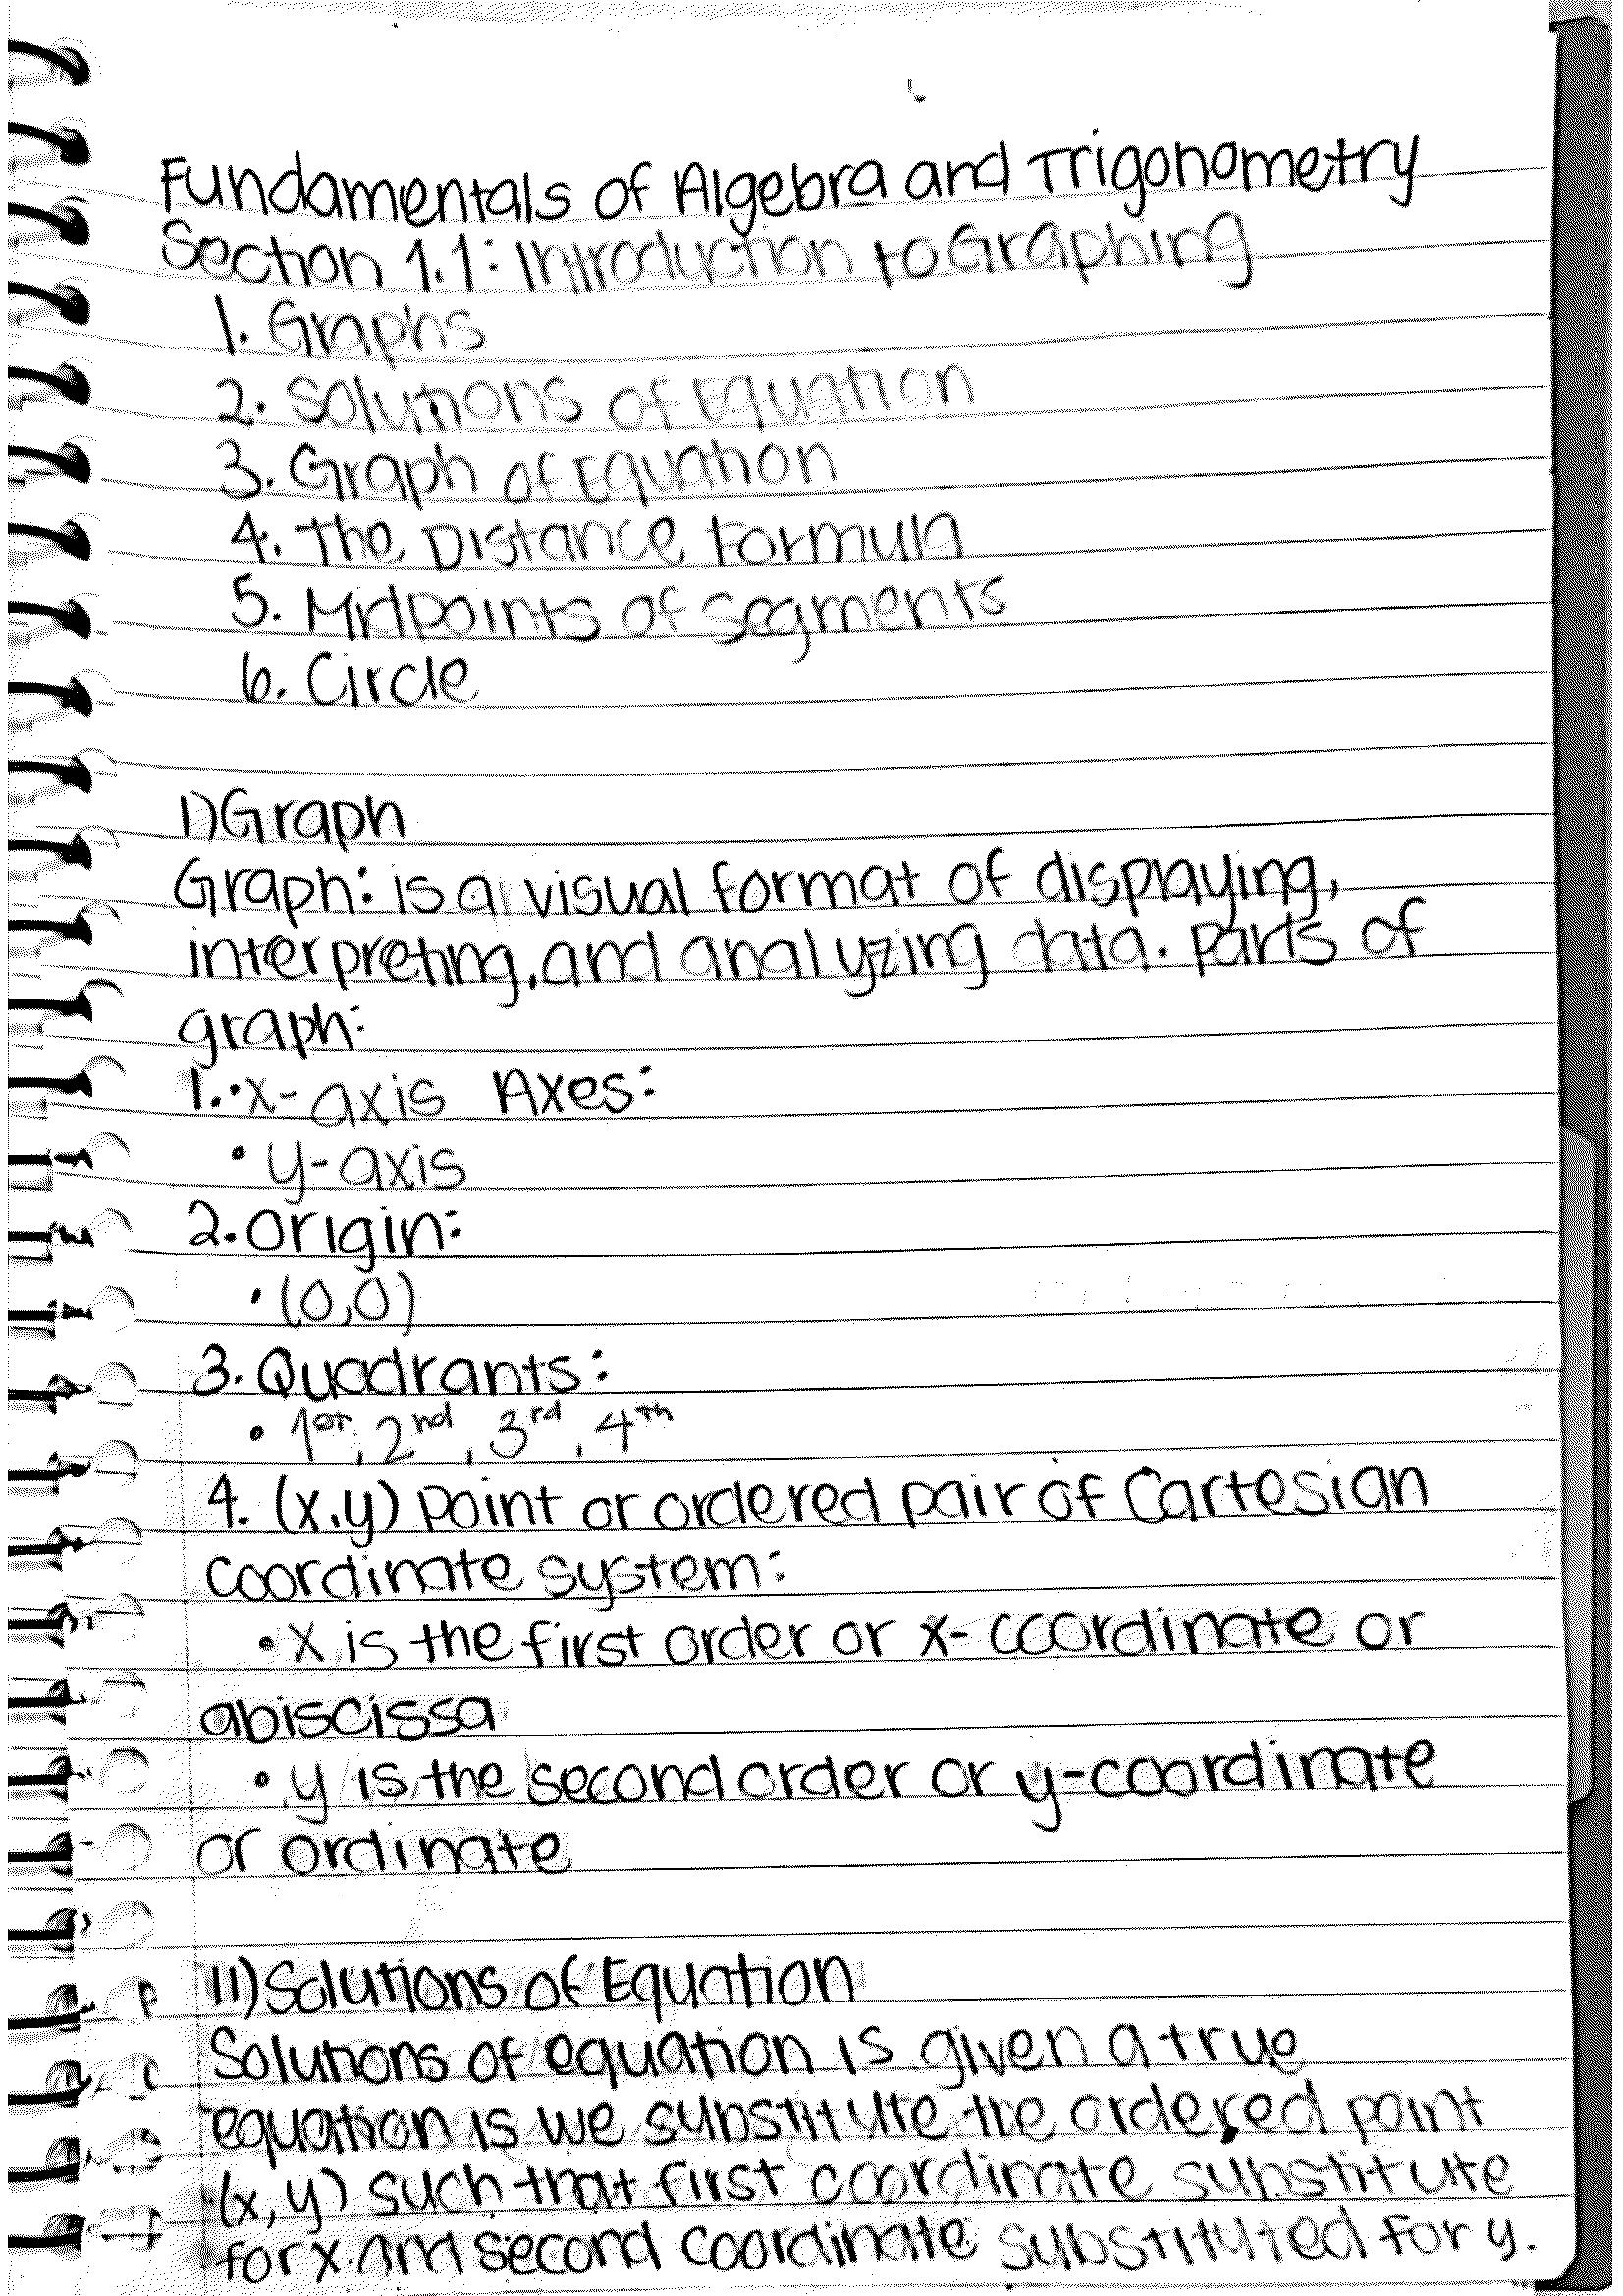 Fundamentals of Algebra and Trigonometry
Section 1.1: Introduction to Graphing
1. Graphs
2. Solutions of Equation
3. Graph of Equation
4. The Distance Formula
5. Midpoints of Segments
6. Circle
I) Graph
Graph: is a visual format of displaying,
interpreting, and analyzing data. Parts of
graph:
1. • x-axis Axes:
• y-axis
2. Origin:
• (0,0)
3. Quadrants:
• 1st, 2nd, 3rd, 4th
4. (x,y) point or ordered pair of Cartesian
Coordinate system:
• X is the first order or x-coordinate or
abiscissa
• y is the second order or y-coordinate
or ordinate
II) Solutions of Equation
Solutions of equation is given a true
equation is we substitute the ordered point
(x,y) such that first coordinate substitute
for x and second coordinate substituted for y.